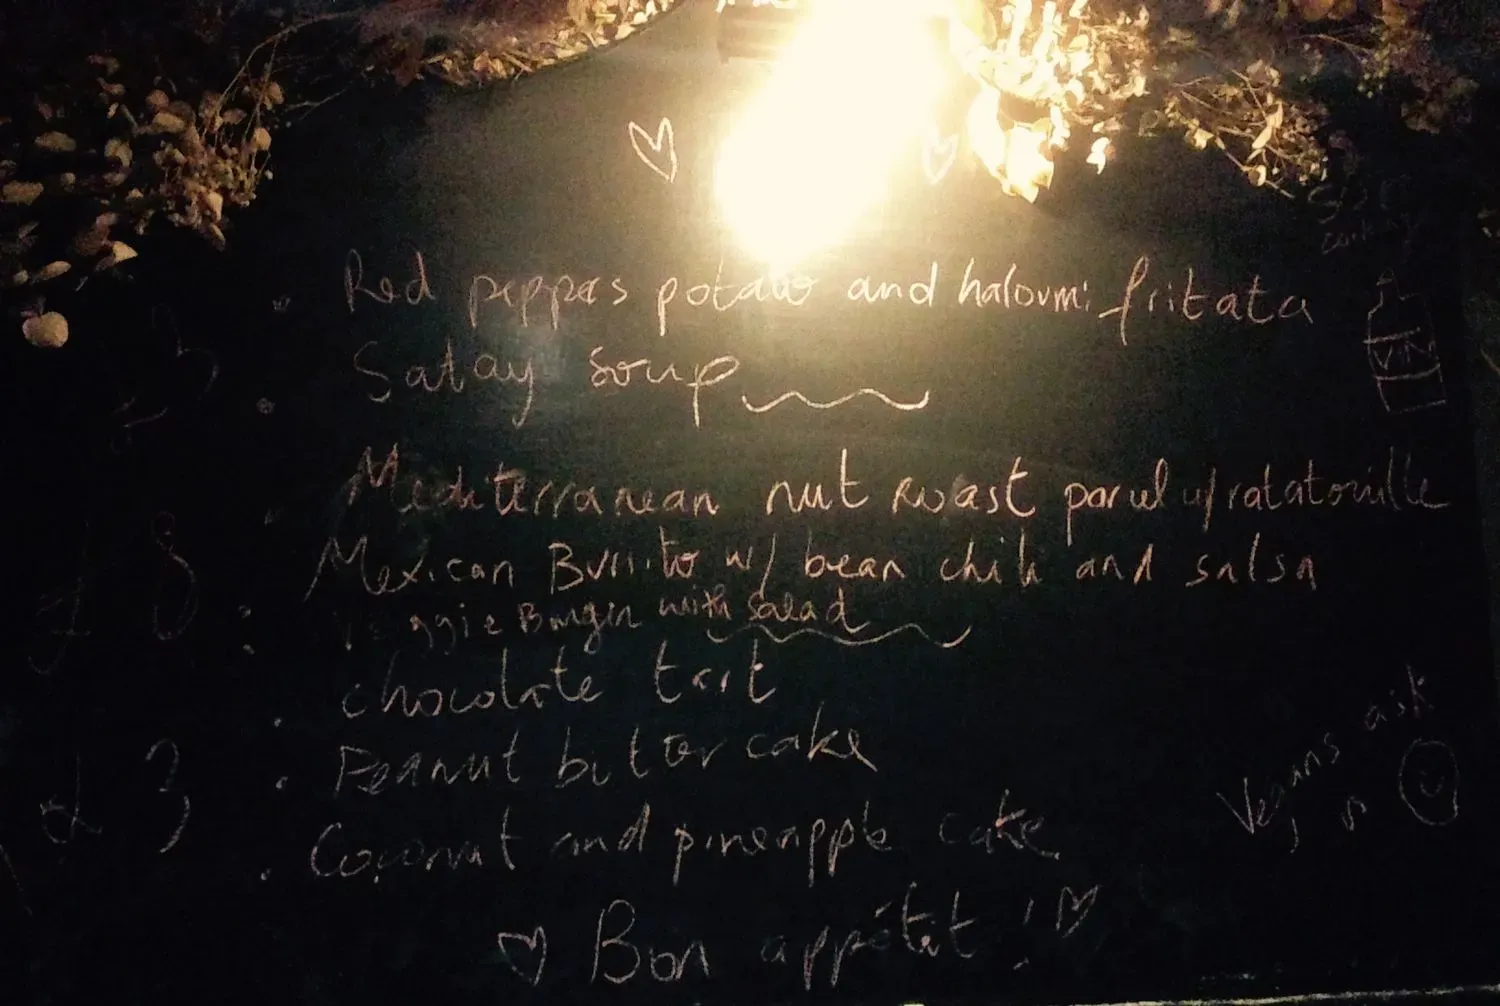 Red peppers potato and haloumi fritata
£ 3
Satay soup
VIN
Mediterranean nut roast parcel w/ ratatouille
£ 8
Mexican Burrito w/ bean chili and salsa
Veggie Burger with salad
chocolate tart
£ 3
Peanut butter cake
Coconut and pineapple cake
Vegans ask
Bon appétit !